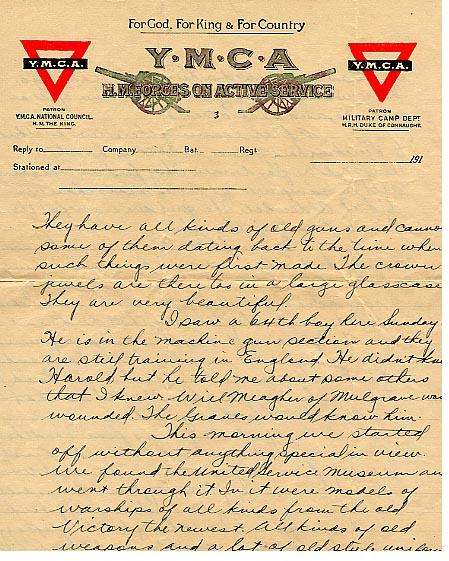 For God, For King & For Country
Y.M.C.A
H.M. FORCES ON ACTIVE SERVICE
Y.M.C.A.
PATRON
Y.M.C.A. NATIONAL COUNCIL.
H.M. THE KING.
3
Y.M.C.A.
PATRON
MILITARY CAMP DEPT
H.R.H. DUKE OF CONNAUGHT.
Reply to Company Bat. Regt
Stationed at
191
They have all kinds of old guns and canno
some of them dating back to the time when
such things were first made. The crown
jewels are there too in a large glasscase
They are very beautiful
I saw a 64th boy here Sunday.
He is in the machine gun section and they
are still training in England. He didnt kn
Harold but he told me about some others
that I knew. Will Meagher of Mulgrave was
wounded. The Graves would know him.
This morning we started
off without anything special in view.
We found the United Service Museum an
went through it In it were models of
warships of all kinds from the old
Victory the newest. All kinds of old
weapons and a lot of old style unifor